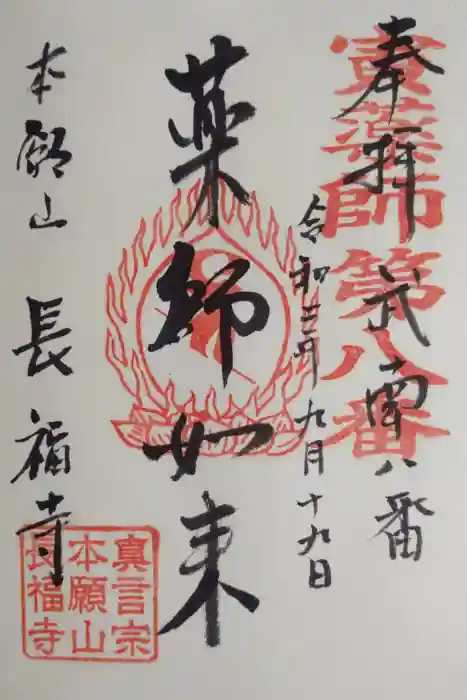 奉拝
武南八番
寅薬師第八番
令和三年九月十九日
薬師如来
本願山 長福寺
真言宗
本願山
長福寺